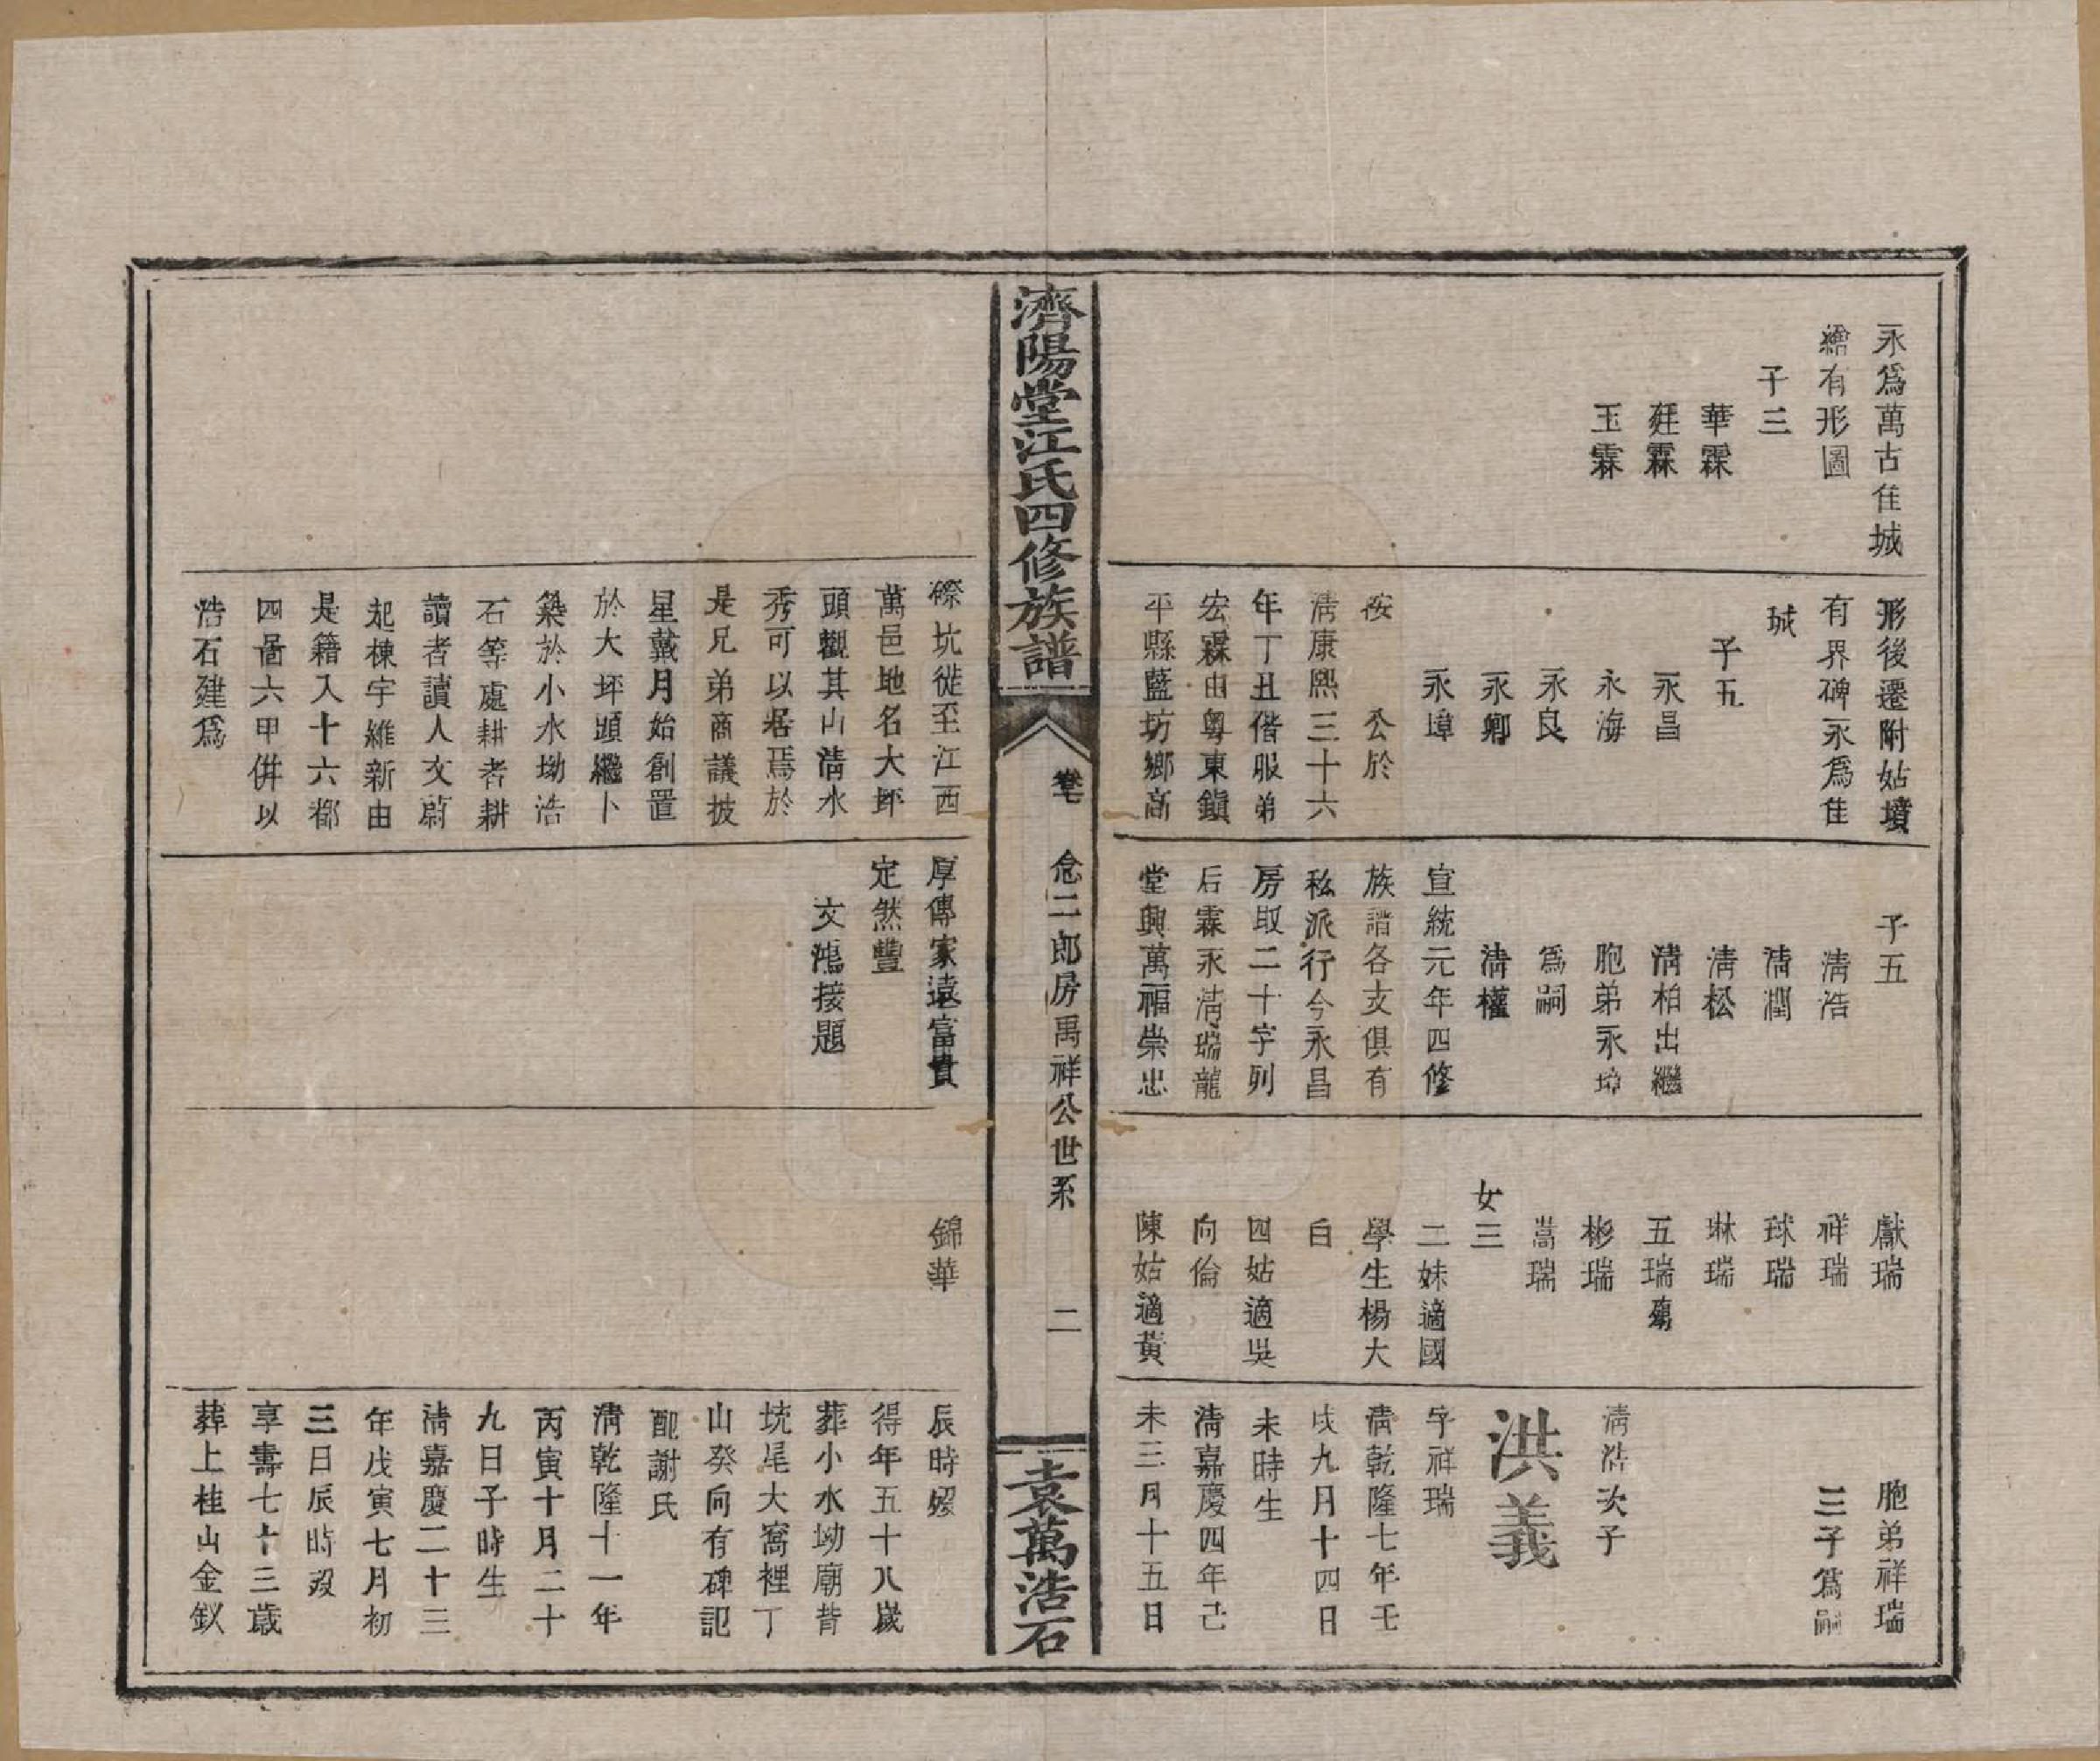 永爲萬古佳城
繪有形圖
子三
華霖
莊霖
玉霖
形後遷附姑墳
有界碑永爲佳
城
子五
永昌
永海
永良
永鄉
永璋
按 公於
淸康熙三十六
年丁丑偕服弟
宏霖由粵東鎭
平縣藍坊鄉高
子五
淸浩
淸潤
淸松
淸柏出繼
胞弟永璋
爲嗣
淸權
宣統元年四修
族譜各支俱有
私派行今永昌
房取二十字列
后霖永淸瑞龍
堂興萬福崇忠
獻瑞
祥瑞
球瑞
琳瑞
五瑞殤
彬瑞
嵩瑞
女三
二妹適國
學生楊大
白
四姑適吳
向倫
陳姑適黃
胞弟祥瑞
三子爲嗣
淸浩次子
洪義
字祥瑞
淸乾隆七年壬
戌九月十四日
未時生
淸嘉慶四年己
未三月十五日
濟陽堂江氏四修族譜
卷七
念二郎房禹祥公世系
二
袁萬浩石
磜坑徙至江西
萬邑地名大坪
頭觀其山淸水
秀可以居焉於
是兄弟商議披
星戴月始創置
於大坪頭繼卜
築於小水坳浩
石等處耕者耕
讀者讀人文蔚
起棟宇維新由
是籍入十六都
四啚六甲併以
浩石建爲
厚傳家遠富貴
定然豐
文鴻接題
錦華
辰時歿
得年五十八歲
葬小水坳廟背
坑尾大窩裡丁
山癸向有碑記
配謝氏
淸乾隆十一年
丙寅十月二十
九日子時生
淸嘉慶二十三
年戊寅七月初
三日辰時歿
享壽七十三歲
葬上桂山金釵